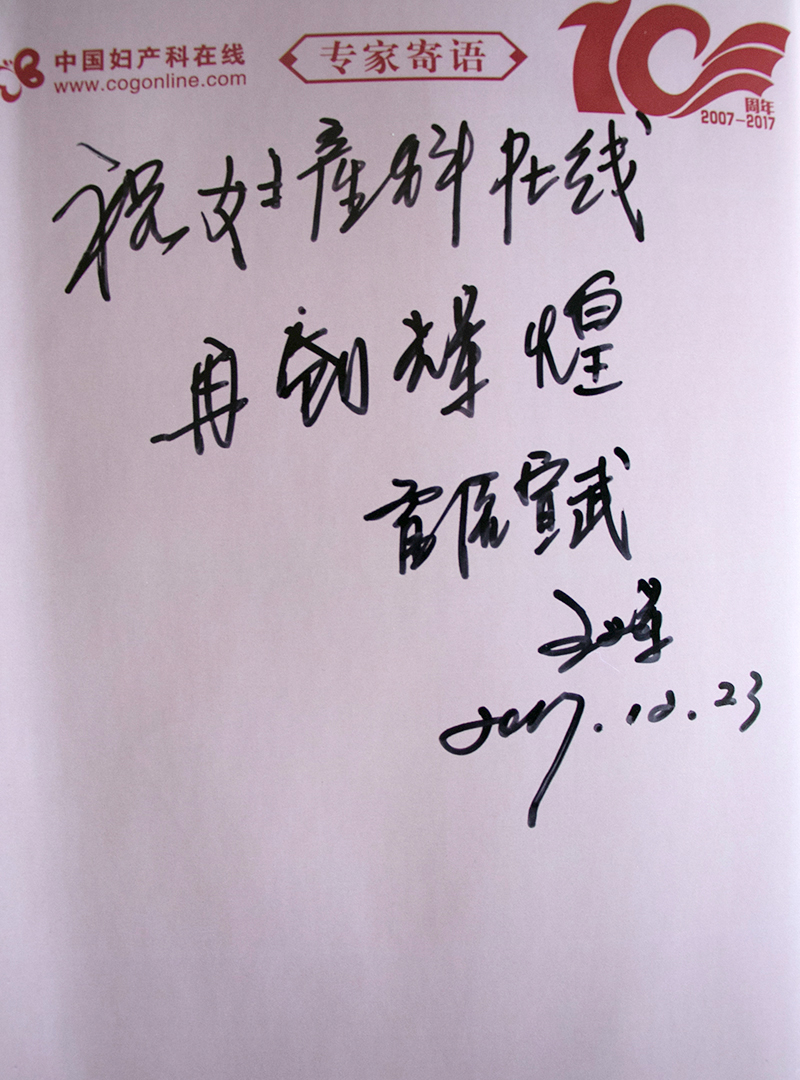 中国妇产科在线
www.cogonline.com
专家寄语
10周年
2007-2017
祝妇產科在线
再创辉煌
首医宣武
2017.10.23